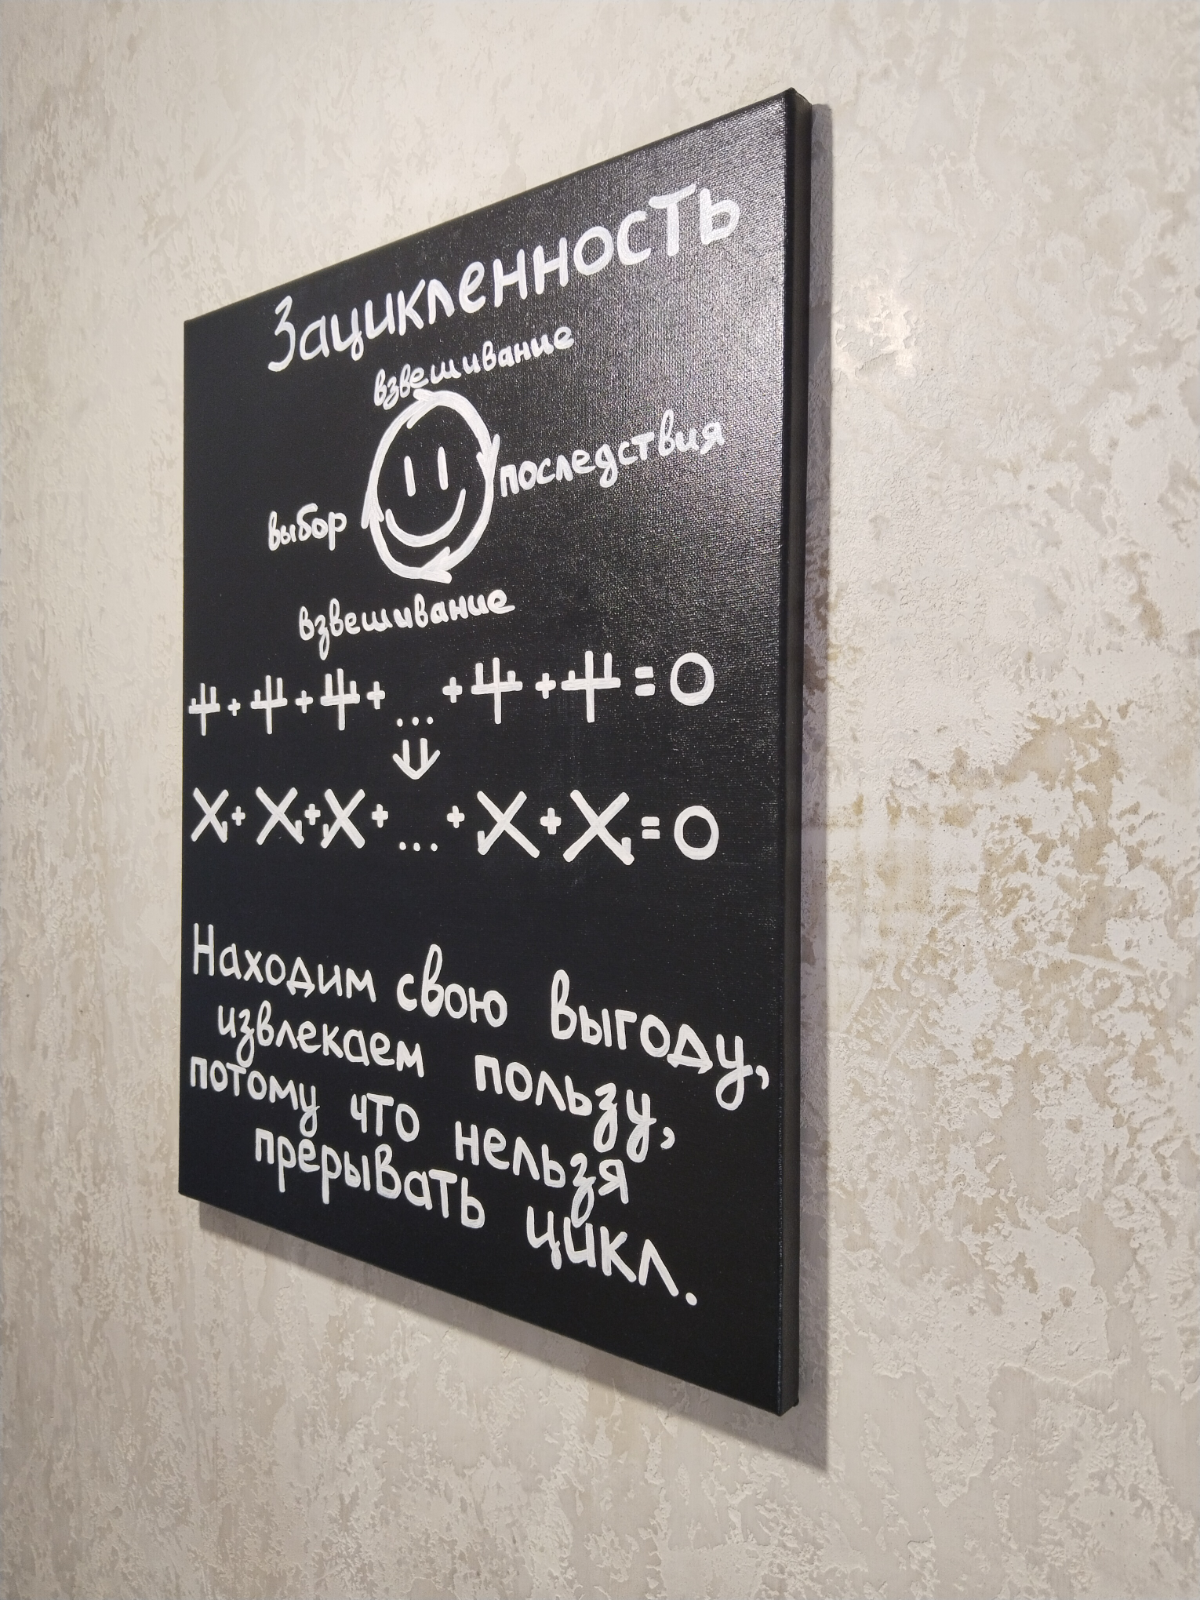 Зацикленность
взвешивание
последствия
выбор
взвешивание
+ + + ... + + = 0
X + X + X + ... + X + X = 0
Находим свою выгоду,
извлекаем пользу,
потому что нельзя
прерывать цикл.